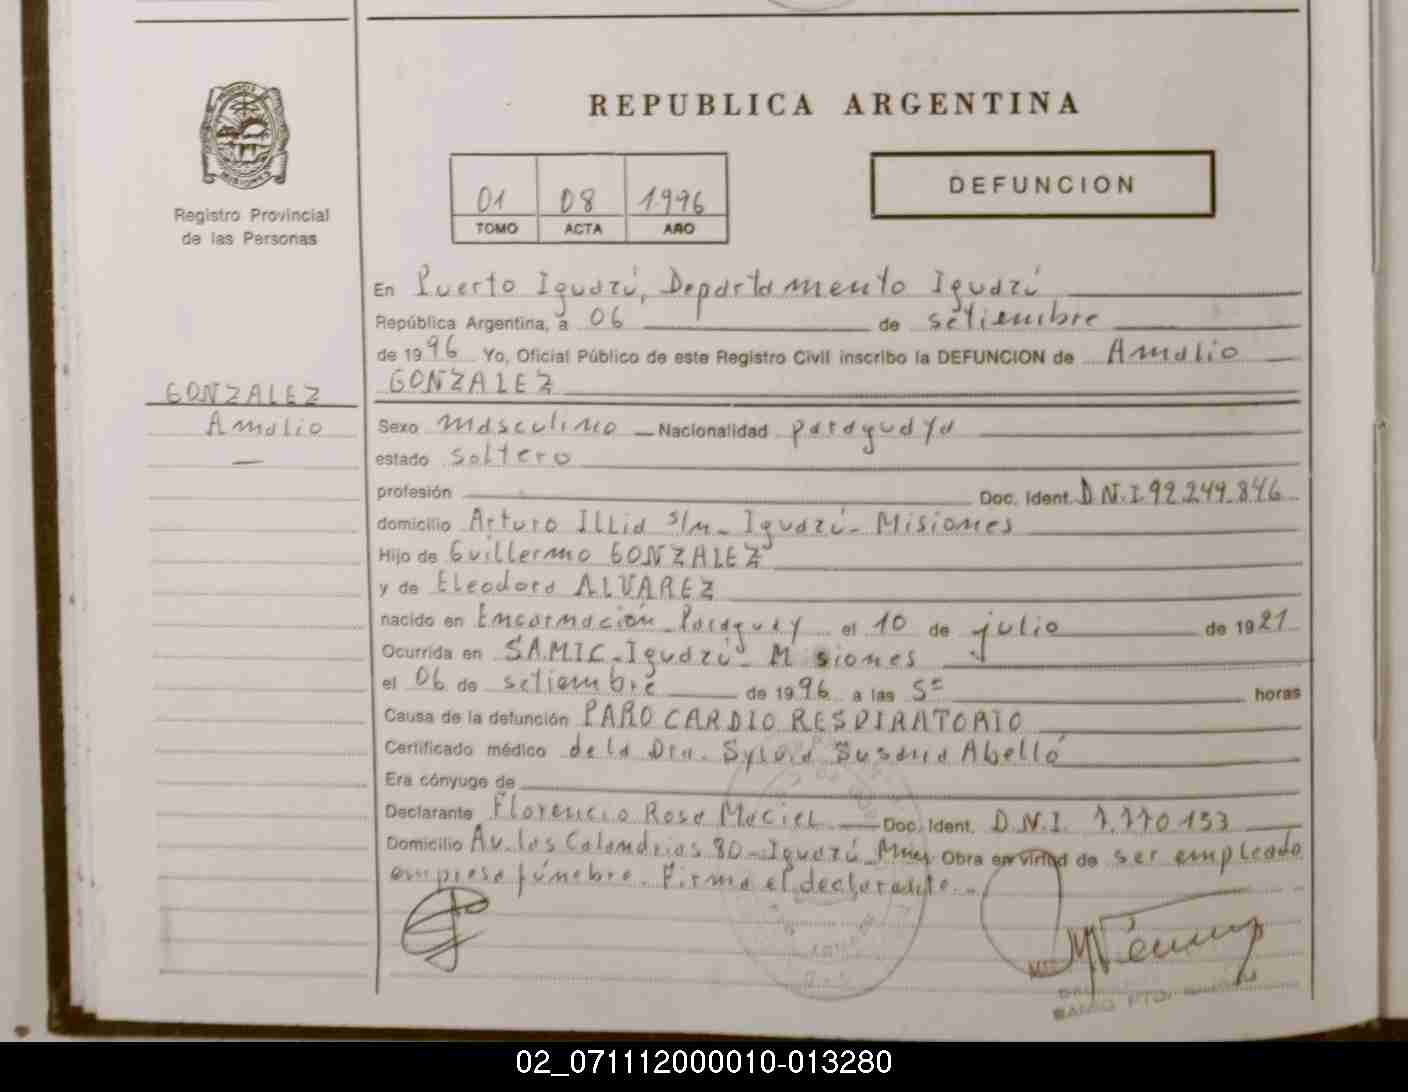 REPUBLICA ARGENTINA
Registro Provincial
de las Personas
01 08 1996
TOMO ACTA AÑO
DEFUNCION
En Puerto Iguazú, Departamento Iguazú
República Argentina, a 06 de setiembre
de 1996 Yo, Oficial Público de este Registro Civil inscribo la DEFUNCION de Amalio
GONZALEZ
GONZALEZ
Amalio
Sexo masculino Nacionalidad paraguaya
estado soltero
profesión Doc. Ident. D.N.I. 92.249.846
domicilio Arturo ILLia s/n - Iguazú - Misiones
Hijo de Guillermo GONZALEZ
y de Eleodora ALVAREZ
nacido en Encarnación - Paraguay el 10 de julio de 1921
Ocurrida en SAMIC - Iguazú - Misiones
el 06 de setiembre de 1996 a las 5 horas
Causa de la defunción PARO CARDIO RESPIRATORIO
Certificado médico de la Dra. Sylvia Susana Abelló
Era cónyuge de
Declarante Florencio Rosa Maciel Doc. Ident. D.N.I. 7.770.153
Domicilio Av. las Calandrias 80 - Iguazú - Mnes Obra en virtud de ser empleado
empresa fúnebre. Firma el declarante.
02_071112000010-013280